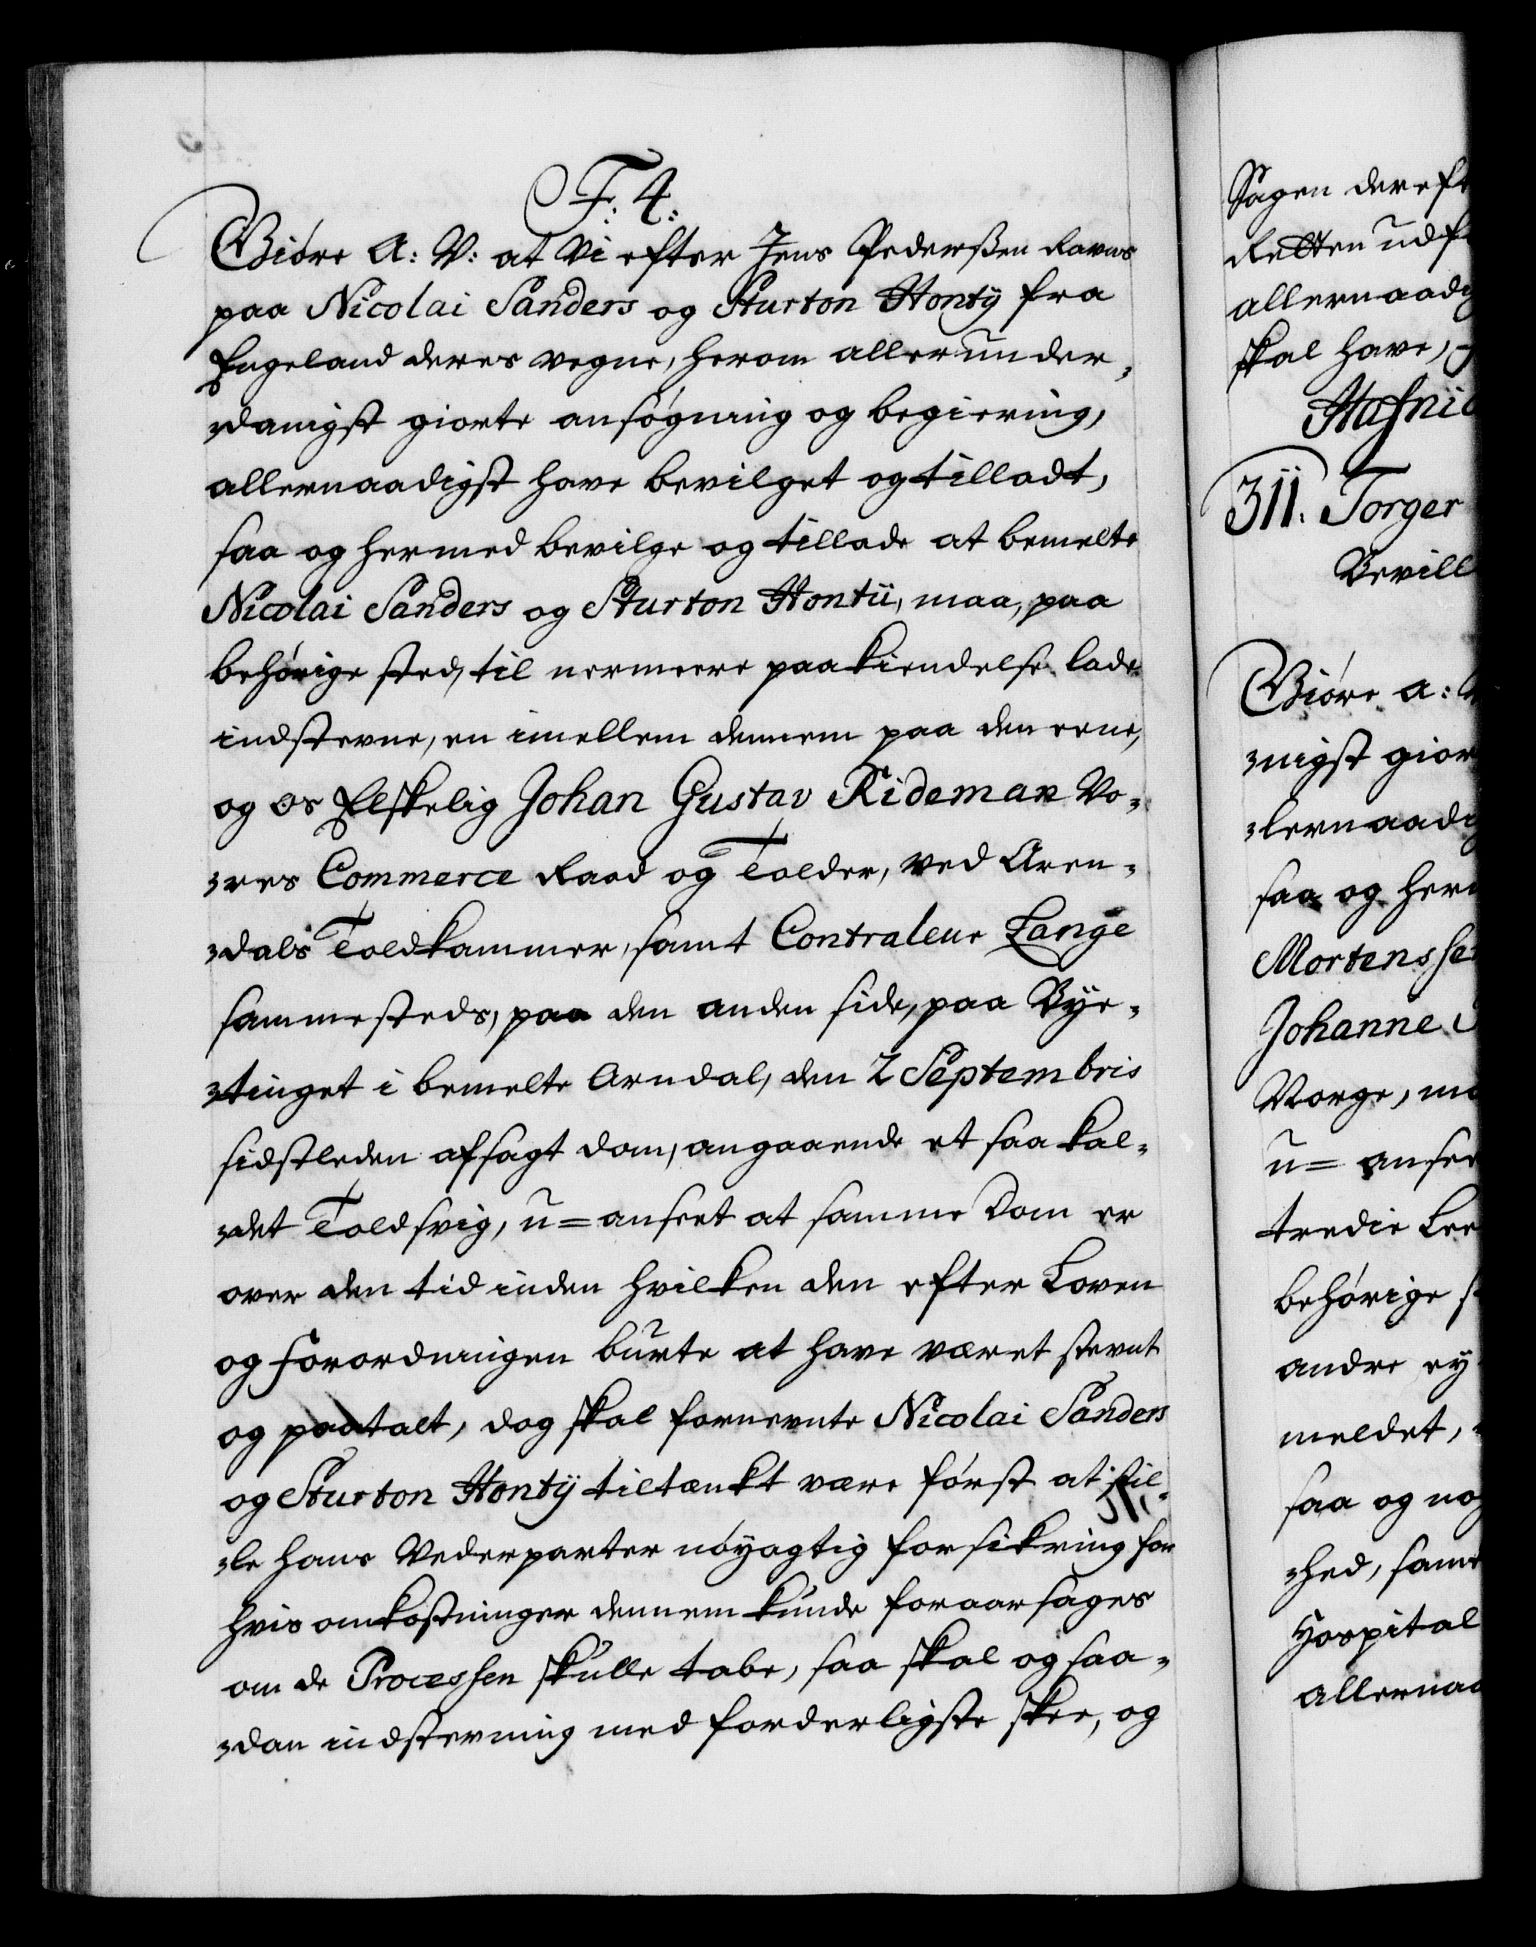 F: 4:
Giøre A: V: at Vi efter Jens Pederssen Ravns
paa Nicolai Sanders og Sturton Hontÿ fra
Engeland deres vegne, herom allerunder-
danigst giorte ansøgning og begiering,
allernaadigst have bevilget og tilladt,
saa og hermed bevilge og tillade at bemelte
Nicolai Sanders og Sturton Hontii, maa, paa
behørige sted, til nermeere paakiendelse lade
indstevne, en imellem dennem paa den eene,
og os Elskelig Johan Gustav Rideman Vo-
res Commerce Raad og Tolder, ved Aren-
dals Toldkammer, samt Contraleur Lange
sammesteds, paa den anden side, paa Bÿe-
tinget i bemelte Arndal, den 2 Septembris
sidstleden afsagt dom, angaaende et saa kal-
det Toldsvig, u=anseet at samme Dom er
over den tid inden hvilken den efter Loven
og Forordningen burte at have været stevnt
og paatalt, dog skal fornevnte Nicolai Sanders
og Sturton Hontÿ tiltænkt være først at stil-
le hans Vederparter nøyagtig forsikring for
hvis omkostninger dennem kunde foraarsages
om de Processen skulle tabe, saa skal og saa-
dan indstevning med forderligste skee, og
Sagen dereft
Retten udf
allernaadig
skal have,
Hafnia
311. Torger
Bevill
Giøre a: V
nigst gior
lernaadig
saa og herm
Mortenssen
Johanne
Norge, ma
u= ansee
tredie Lee
behørige s
andre ey
meldet,
saa og nog
hed, samt
Hospital
allernaa